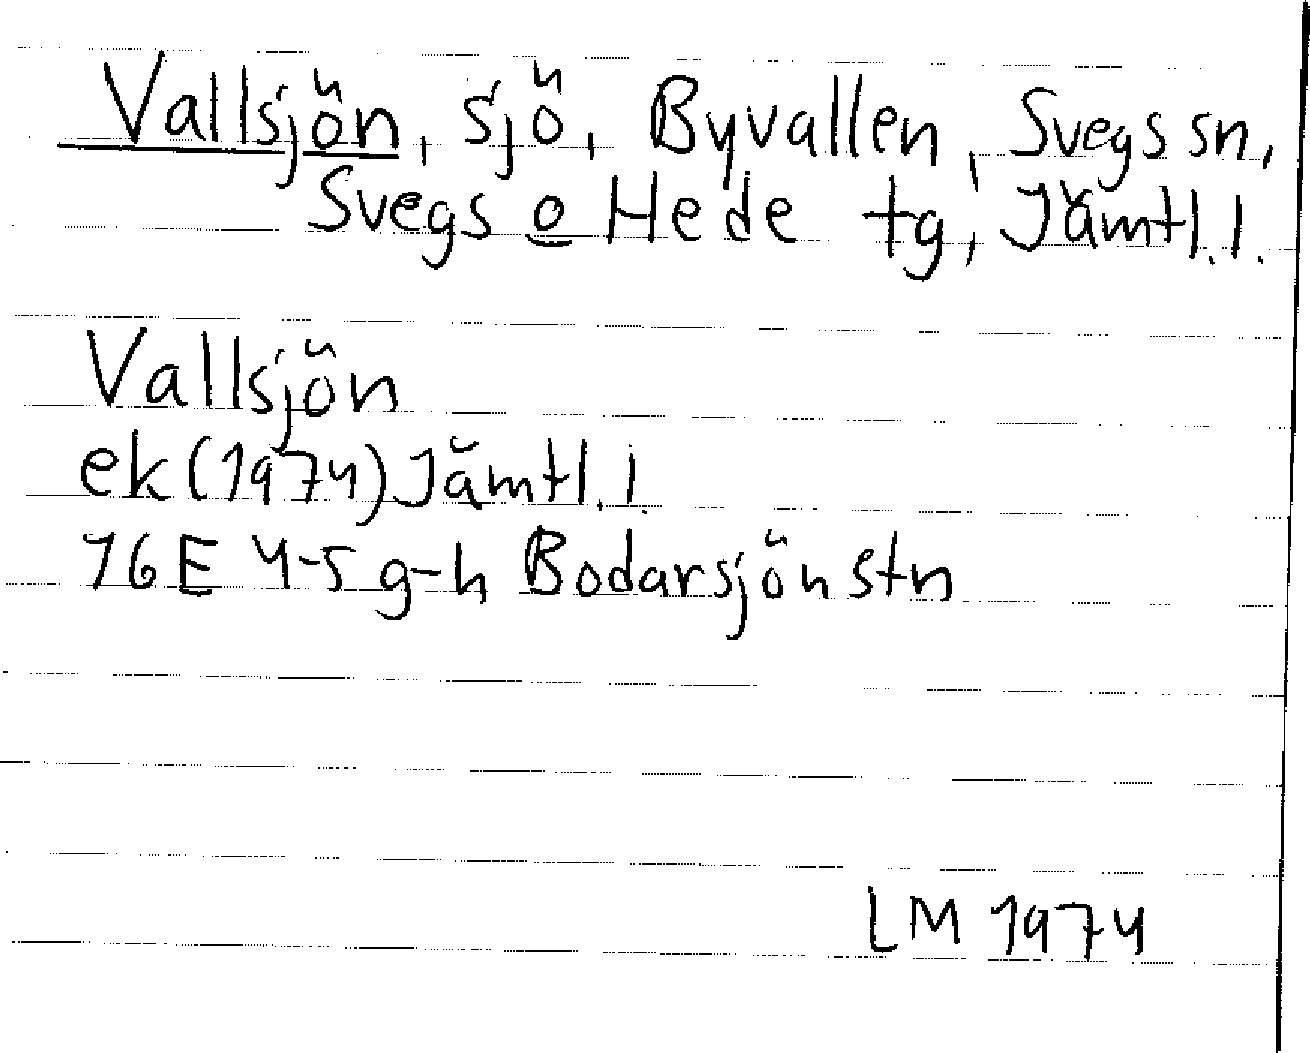 Vallsjön, sjö, Byvallen, Svegs sn,
Svegs o Hede tg, Jämtl. l.
Vallsjön
ek (1974) Jämtl. l.
16E 4-5 g-h Bodarsjön stn
LM 1974